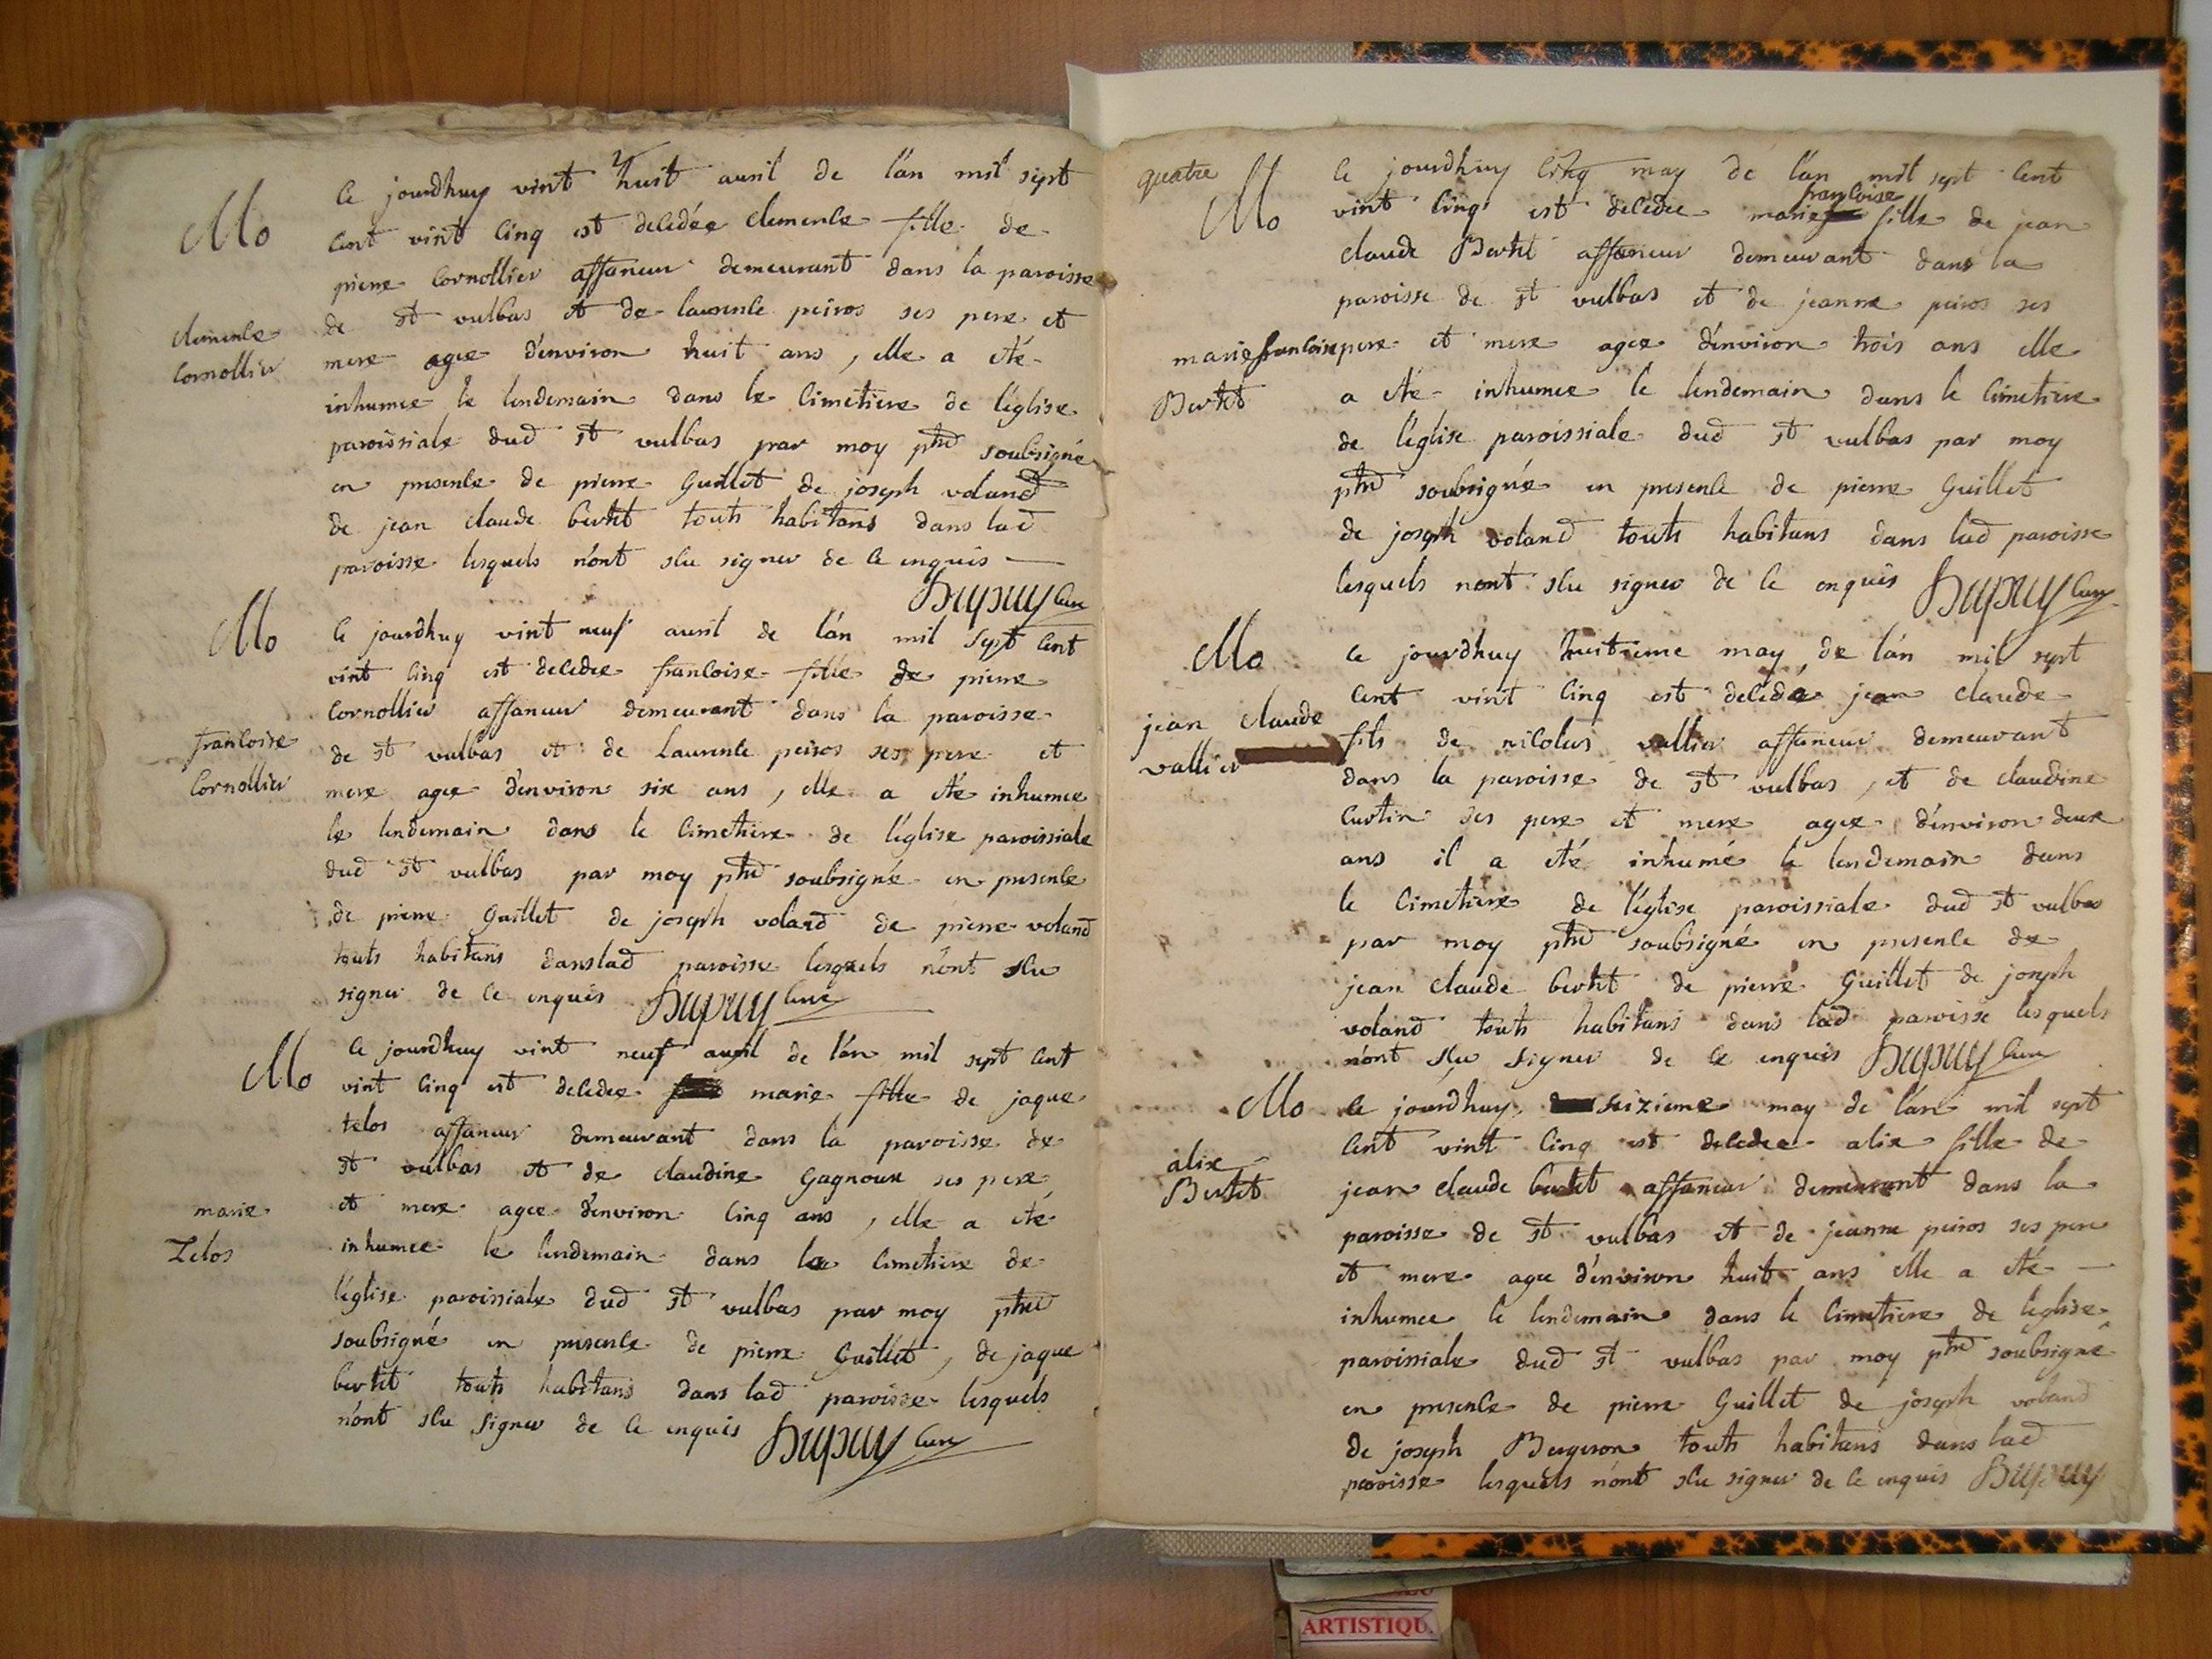 Mo
clemence
Cornollier
Ce jourdhuy vint huit auril de l'an mil sept
Cent vint Cinq est decedée clemence fille de
pierre Cornollier affaneur demeurant dans la paroisse
de st vulbas et de laurence peiros ses pere et
mere agee d'environ huit ans, elle a eté
inhumee le lendemain dans le Cimetiere de l'église
paroissiale dud st vulbas par moy ptre soubsigné
en presence de pierre Guillet de joseph voland
de jean claude bertet touts habitans dans lad
paroisse lesquels n'ont sçu signer de ce enquis
Dupuy Cure
Mo
francoise
Cornollier
Ce jourdhuy vint neuf auril de l'an mil sept Cent
vint Cinq est decedee francoise fille de pierre
Cornollier affaneur demeurant dans la paroisse
de st vulbas et de Laurence peiros ses pere et
mere agee d'environ six ans, elle a eté inhumee
le lendemain dans le Cimetiere de l'église paroissiale
dud st vulbas par moy ptre soubsigné en presence
de pierre Guillet de joseph voland de pierre voland
touts habitans dans lad paroisse lesquels n'ont sçu
signer de ce enquis Dupuy Cure
Mo
marie
Telos
Ce jourdhuy vint neuf auril de l'an mil sept Cent
vint Cinq est decedee marie fille de jaque
telos affaneur demeurant dans la paroisse de
st vulbas et de claudine Gagnoux ses pere
et mere agee d'environ Cinq ans, elle a eté
inhumee le lendemain dans le Cimetiere de
l'église paroissiale dud st vulbas par moy ptre
soubsigné en presence de pierre Guillet, de jaque
bertet touts habitans dans lad paroisse lesquels
n'ont sçu signer de ce enquis Dupuy Cure
quatre
Mo
marie francoise
Bertet
Ce jourdhuy Cinq may de l'an mil sept Cent
francoise
vint Cinq est decedee marie fille de jean
claude Bertet affaneur demeurant dans la
paroisse de st vulbas et de jeanne peiros ses
pere et mere agee d'environ trois ans elle
a eté inhumee le lendemain dans le Cimetiere
de l'église paroissiale dud st vulbas par moy
ptre soubsigné en presence de pierre Guillet
de joseph voland touts habitans dans lad paroisse
lesquels nont sçu signer de ce enquis Dupuy Cure
Mo
jean claude
vallier
Ce jourdhuy huitieme may de l'an mil sept
Cent vint Cinq est decedé jean claude
fils de nicolas vallier affaneur demeurant
dans la paroisse de st vulbas, et de claudine
Curtin ses pere et mere agee d'environ deux
ans il a eté inhumé le lendemain dans
le Cimetiere de l'église paroissiale dud st vulbas
par moy ptre soubsigné en presence de
jean claude bertet de pierre Guillet de joseph
voland touts habitans dans lad paroisse lesquels
n'ont sçu signer de ce enquis Dupuy Cure
Mo
alix
Bertet
Ce jourdhuy seizieme may de l'an mil sept
Cent vint Cinq est decedee alix fille de
jean claude bertet affaneur demeurant dans la
paroisse de st vulbas et de jeanne peiros ses pere
et mere agee d'environ huit ans elle a eté
inhumee le lendemain dans le Cimetiere de leglise
paroissiale dud st vulbas par moy ptre soubsigné
en presence de pierre Guillet de joseph voland
de joseph Bergeron touts habitans dans lad
paroisse lesquels n'ont sçu signer de ce enquis Dupuy
ARTISTIQU